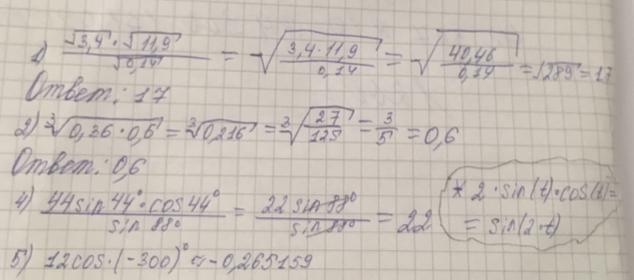 1) √3,4 · √11,9 / √0,14 = √(3,4 · 11,9 / 0,14) = √(40,46 / 0,14) = √289 = 17
Ответ: 17
2) ∛(0,36 · 0,6) = ∛0,216 = ∛(27/125) = 3/5 = 0,6
Ответ: 0,6
4) 44 sin 44° · cos 44° / sin 88° = 22 sin 88° / sin 88° = 22
* 2 · sin(t) · cos(t) =
= sin(2 · t)
5) 12 cos · (-300)° ≈ -0,265159